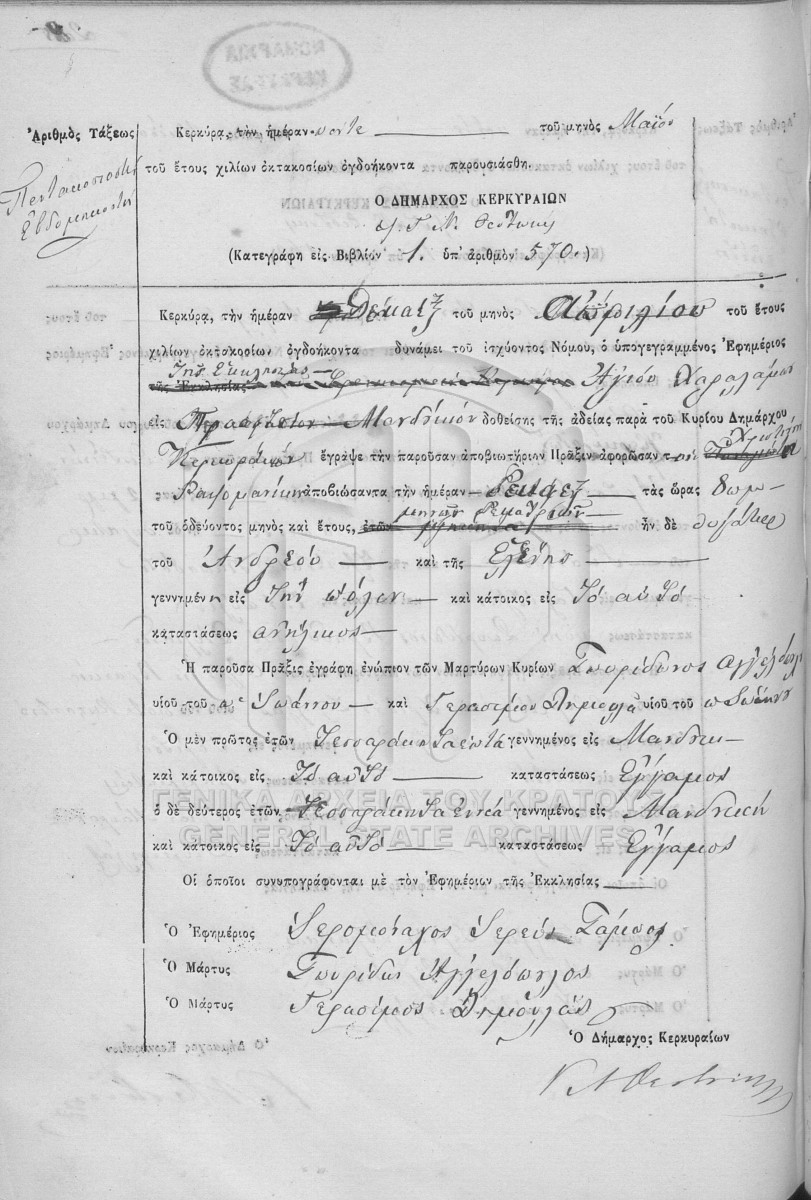 ΝΟΜΑΡΧΙΑ
ΚΕΡΚΥΡΑΣ
Ἀριθμὸς Τάξεως
Πεντακοσιοστὴ
Ἑβδομηκοστὴ
Κερκύρα, τὴν ἡμέραν πέντε τοῦ μηνὸς Μαΐου
τοῦ ἔτους χιλίων ὀκτακοσίων ὀγδοήκοντα παρουσιάσθη.
Ο ΔΗΜΑΡΧΟΣ ΚΕΡΚΥΡΑΙΩΝ
Γ. Ν. Θεοτόκης
(Κατεγράφη εἰς Βιβλίον 1. ὑπ᾽ ἀριθμὸν 570.)
Κερκύρα, τὴν ἡμέραν Δέκατη τοῦ μηνὸς Ἀπριλίου τοῦ ἔτους
χιλίων ὀκτακοσίων ὀγδοήκοντα δυνάμει τοῦ ἰσχύοντος Νόμου, ὁ ὑπογεγραμμένος Ἐφημέριος
τῆς Ἐκκλησίας
τῆς Ἐκκλησίας Ἁγίου Χαραλάμπου
εἰς Προάστειον Μανδύκιον δοθείσης τῆς ἀδείας παρὰ τοῦ Κυρίου Δημάρχου
Κερκυραίων ἔγραψε τὴν παροῦσαν ἀποβιωτήριον Πρᾶξιν ἀφορῶσαν τ
ἀποβιώσαντα τὴν ἡμέραν τὰς ὥρας
τοῦ ὁδεύοντος μηνὸς καὶ ἔτους, ἐτῶν μηνῶν ἦν δὲ θυγάτηρ
τοῦ Ἀνδρέου καὶ τῆς Ἑλένης
γεννημένη εἰς τὴν πόλιν καὶ κάτοικος εἰς τὸ αὐτὸ
καταστάσεως ἀνήλικος
Ἡ παροῦσα Πρᾶξις ἐγράφη ἐνώπιον τῶν Μαρτύρων Κυρίων Σπυρίδωνος Ἀγγελόπουλου
υἱοῦ τοῦ π Ἰωάννου καὶ Γερασίμου Δημουλᾶ υἱοῦ τοῦ π Ἰωάννου
Ὁ μὲν πρῶτος ἐτῶν Τεσσαράκοντα ἑπτὰ γεννημένος εἰς Μανδύκι
καὶ κάτοικος εἰς τὸ αὐτὸ καταστάσεως ἔγγαμος
ΓΕΝΙΚΑ ΑΡΧΕΙΑ ΤΟΥ ΚΡΑΤΟΥΣ
ὁ δὲ δεύτερος ἐτῶν Τεσσαράκοντα ἐννέα γεννημένος εἰς Μανδύκι
GENERAL STATE ARCHIVES
καὶ κάτοικος εἰς τὸ αὐτὸ καταστάσεως ἔγγαμος
Οἱ ὁποῖοι συνυπογράφονται μὲ τὸν Ἐφημέριον τῆς Ἐκκλησίας
Ὁ Ἐφημέριος Ἱερομόναχος Ἱερεὺς
Ὁ Μάρτυς Σπυρίδων Ἀγγελόπουλος
Ὁ Μάρτυς Γεράσιμος Δημουλᾶς
Ὁ Δήμαρχος Κερκυραίων
Θεοτόκης